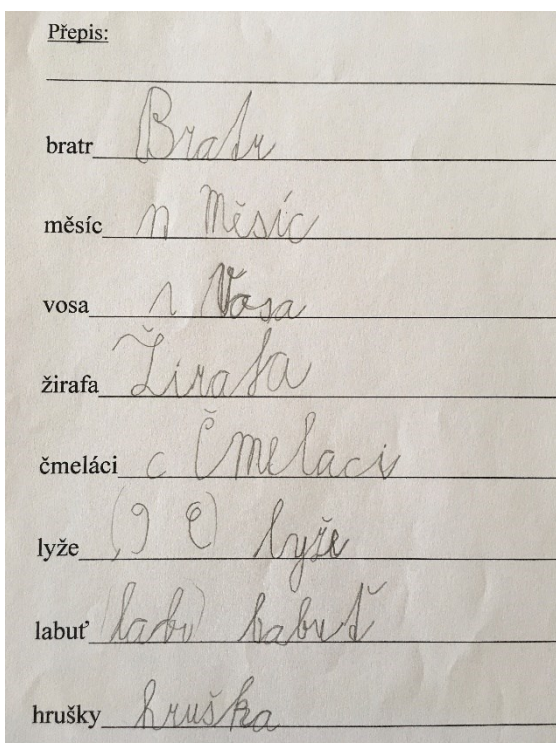 Přepis:
bratr Bratr
měsíc n Měsíc
vosa Vosa
žirafa Žirafa
čmeláci c Čmelaci
lyže lyže
labuť (labu) labuť
hrušky hruška